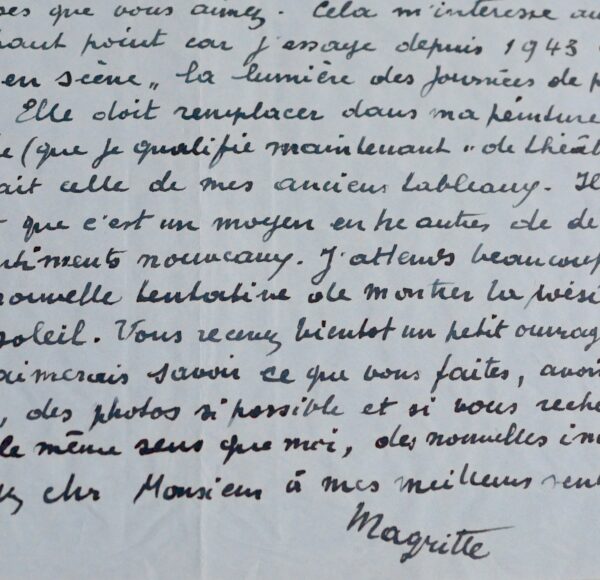 que vous aimez. Cela m'interesse au
haut point car j'essaye depuis 1943
en scène" la lumière des journées de p
Elle doit remplacer dans ma peinture
e (que je qualifie maintenant "de théât
ait celle de mes anciens tableaux. Il
que c'est un moyen entre autres de de
ntiments nouveaux. J'attends beaucoup
nouvelle tentative de montrer la poési
soleil. Vous recevez bientot un petit ouvrag
aimerais savoir ce que vous faites, avoi
, des photos si possible et si vous reche
le même sens que moi, des nouvelles in
ez cher Monsieur à mes meilleurs sent
Magritte